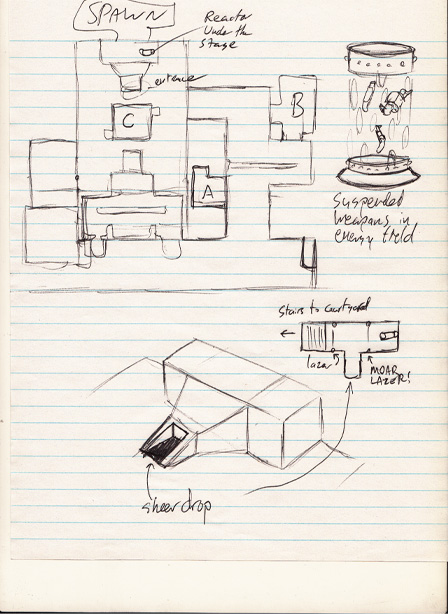 SPAWN
Reactor
Under the
Stage
entrance
B
C
A
Suspended
Weapons in
energy field
Stairs to courtyard
lazar
MOAR
LAZER!
sheer drop